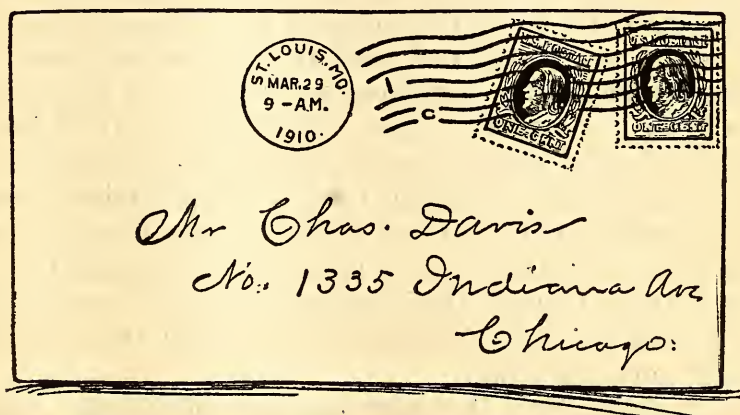 ST. LOUIS, MO.
MAR. 29
9 - AM.
1910.
1
C
U.S. POSTAGE
ONE CENT
U.S. POSTAGE
ONE CENT
Mr Chas. Davis
No. 1335 Indiana Ave
Chicago.